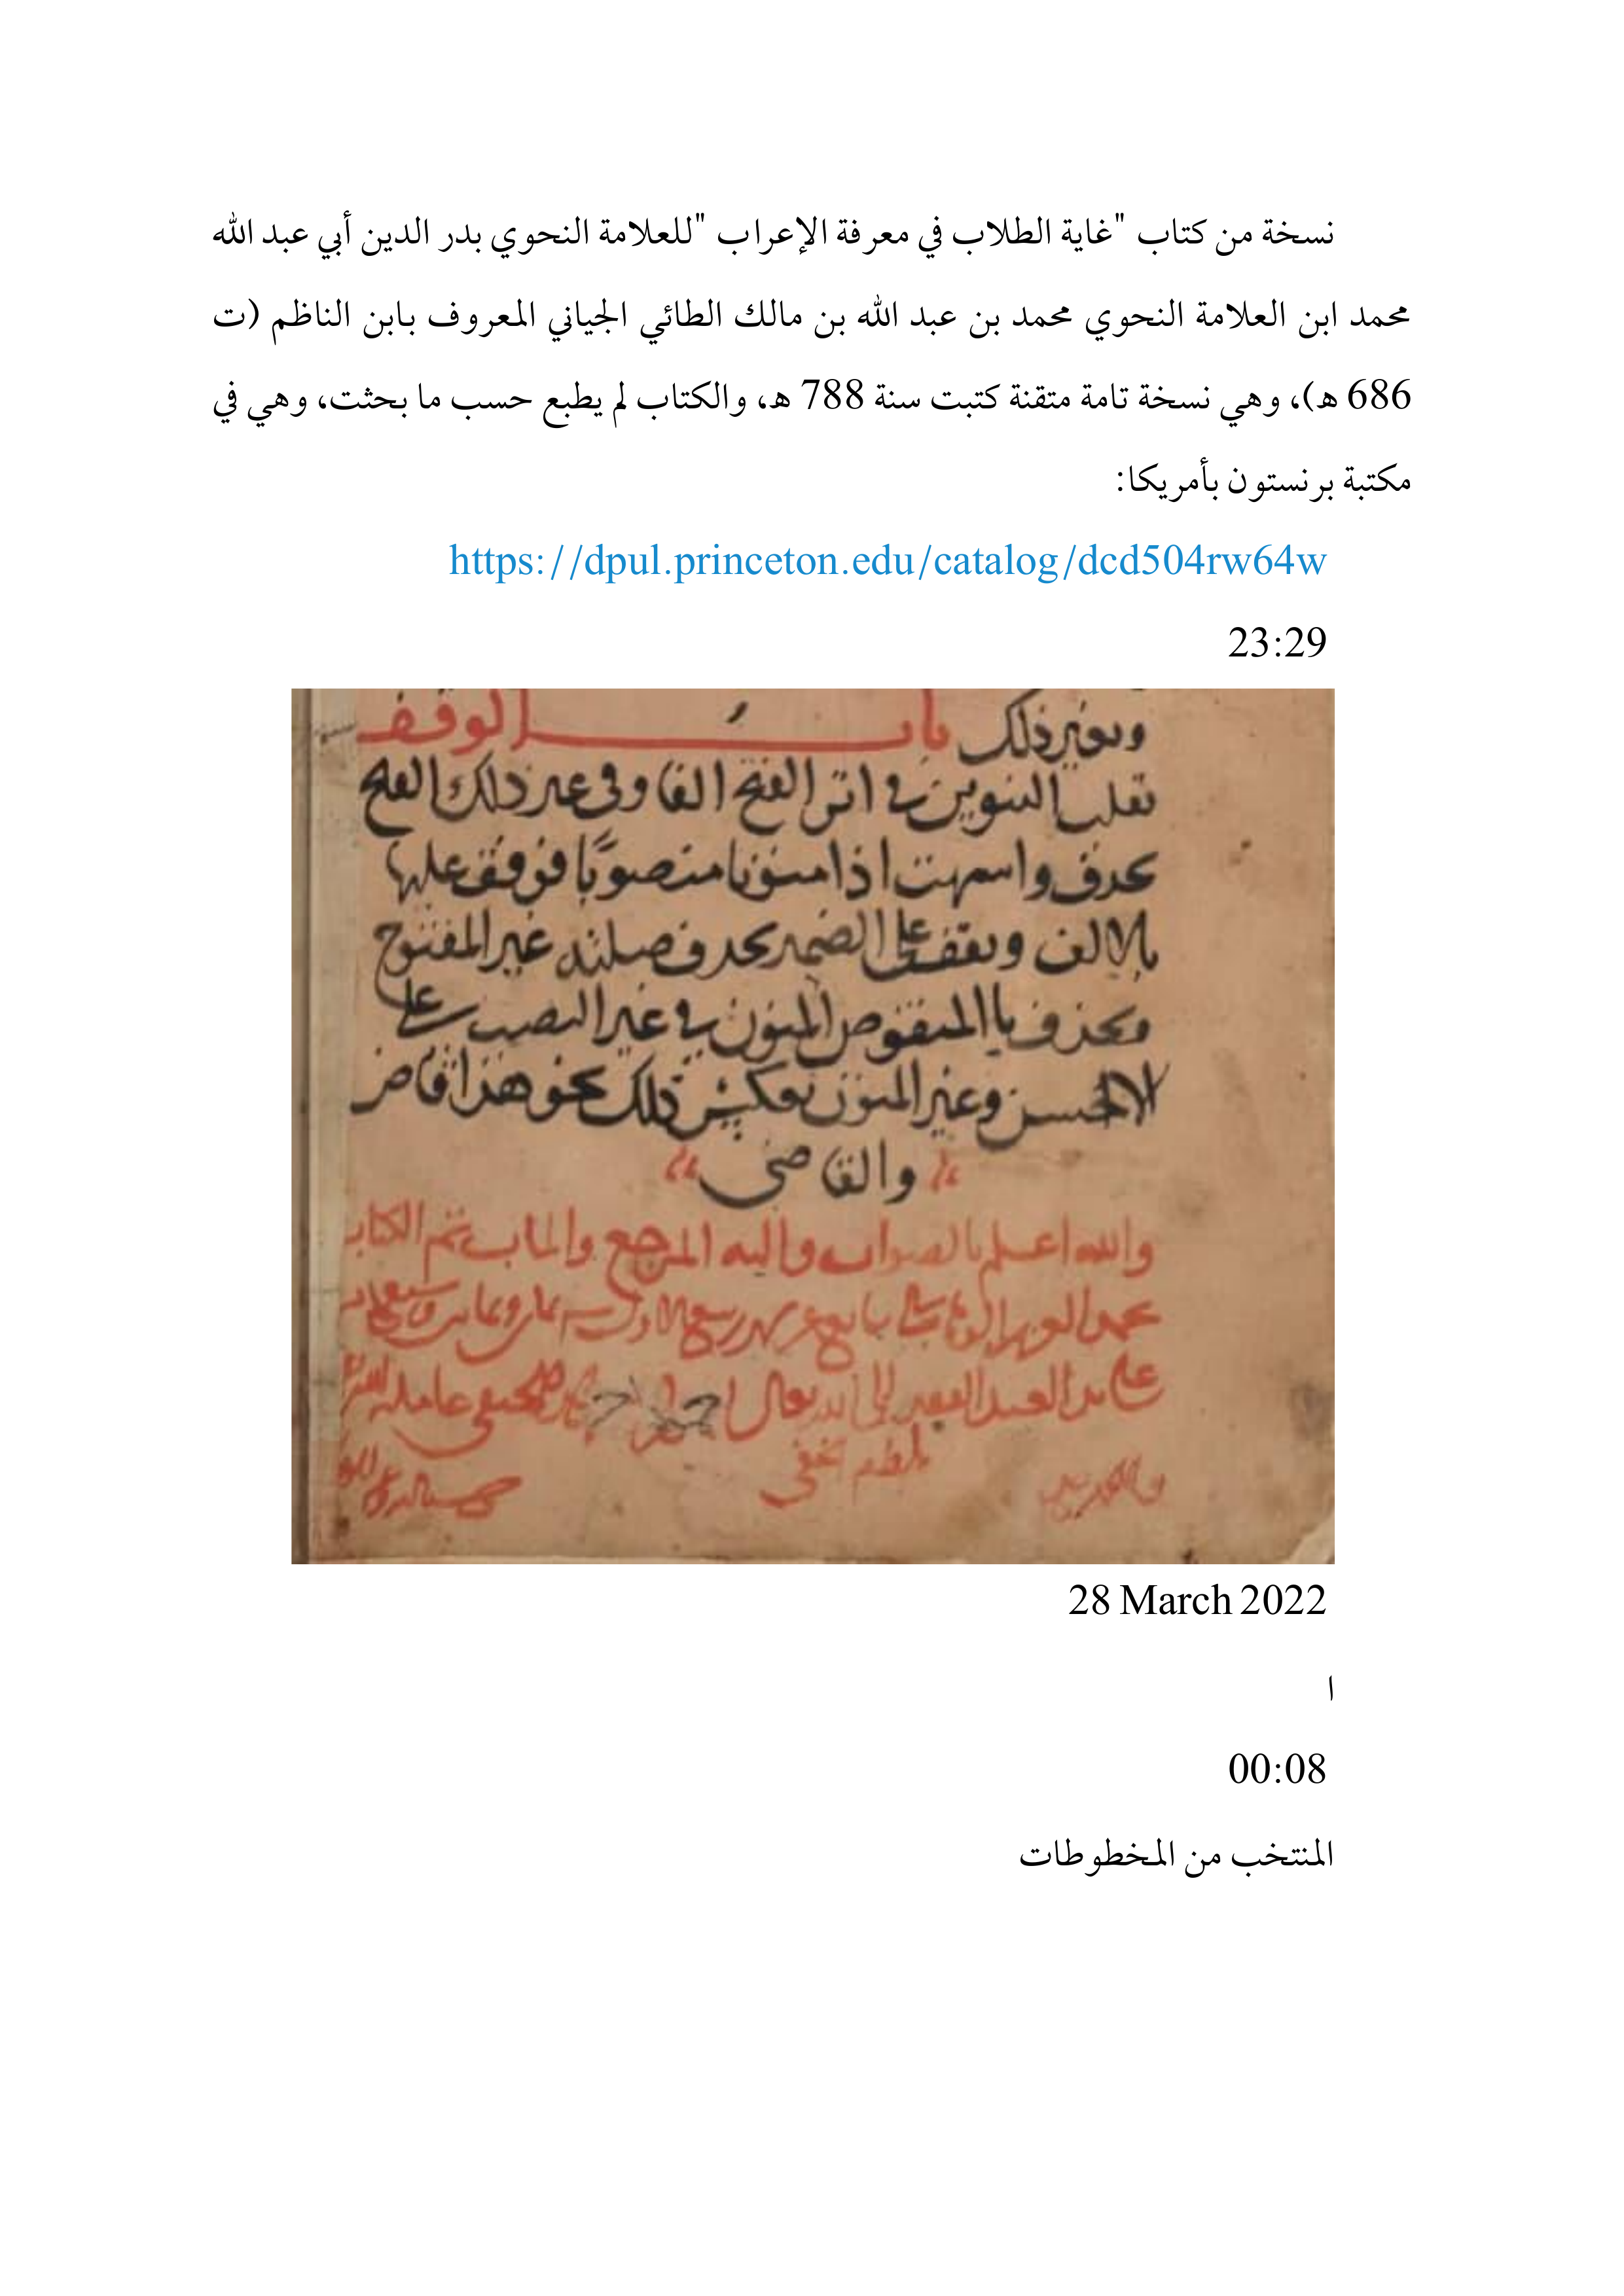 نسخة من كتاب "غاية الطلاب في معرفة الإعراب "للعلامة النحوي بدر الدين أبي عبد الله
محمد ابن العلامة النحوي محمد بن عبد الله بن مالك الطائي الجياني المعروف بابن الناظم (ت
686 هـ)، وهي نسخة تامة متقنة كتبت سنة 788 هـ، والكتاب لم يطبع حسب ما بحثت، وهي في
مكتبة برنستون بأمريكا:
https://dpul.princeton.edu/catalog/dcd504rw64w
23:29
وبغير ذلك باب الوقف
تقلب التنوين في اثر الفتح الفا وفي غير ذلك
يحذف واسمهت اذا منونا منصوبا فوقف عليها
بالالف ويقف على الضمير بحذف صلته غير المفتوح
ويحذف يا المنقوص المنون في غير النصب على
الاحسن وغير المنون بعكس ذلك نحو هذا قاض
والقاضي
والله اعلم بالصواب واليه المرجع والماب تم الكتاب
بحمد ربيع الاول سنة ثمان وثمانين وسبعمايه
على يد العبد الفقير الى الله تعالى الحنفي عامله الله
بلطفه الخفي
28 March 2022
ا
00:08
المنتخب من المخطوطات